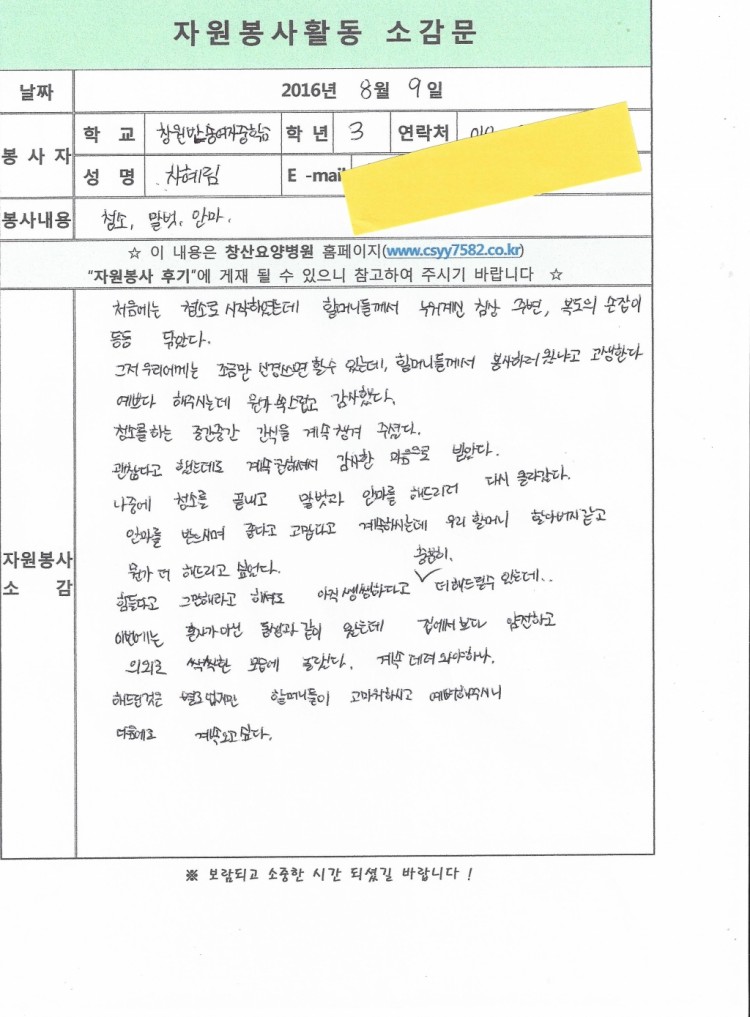 자원봉사활동 소감문
날짜 2016년 8월 9일
봉사자 학교 창원반송여자중학교 학년 3 연락처 010
성명 차혜림 E-mail
봉사내용 청소, 말벗, 안마.
☆ 이 내용은 창산요양병원 홈페이지(www.csyy7582.co.kr)
"자원봉사 후기"에 게재 될 수 있으니 참고하여 주시기 바랍니다 ☆
자원봉사 소감
처음에는 청소로 시작하였는데 할머니들께서 누워계신 침상 주변, 복도의 손잡이
등등 닦았다.
그저 우리에게는 조금만 신경쓰면 할수 있는데, 할머니들께서 봉사하러 왔냐고 고생한다
예쁘다 해주시는데 뭔가 쑥스럽고 감사했다.
청소를 하는 중간중간 간식을 계속 챙겨 주셨다.
괜찮다고 했는데도 계속 권하셔서 감사한 마음으로 받았다.
나중에 청소를 끝내고 말벗과 안마를 해드리러 다시 올라갔다.
안마를 받으시며 좋다고 고맙다고 계속하시는데 우리 할머니 할아버지 같고
뭔가 더 해드리고 싶었다.
힘들다고 그만해라고 하셔도 아직 쌩쌩하다고 충분히 더 해드릴수 있는데..
이번에는 혼자가 아닌 동생과 같이 왔는데 집에서 보다 얌전하고
의외로 싹싹한 모습에 놀랐다. 계속 데려 와야하나.
해드린것은 별로 없지만 할머니들이 고마워하시고 예뻐해주시니
다음에도 계속 오고 싶다.
※ 보람되고 소중한 시간 되셨길 바랍니다 !